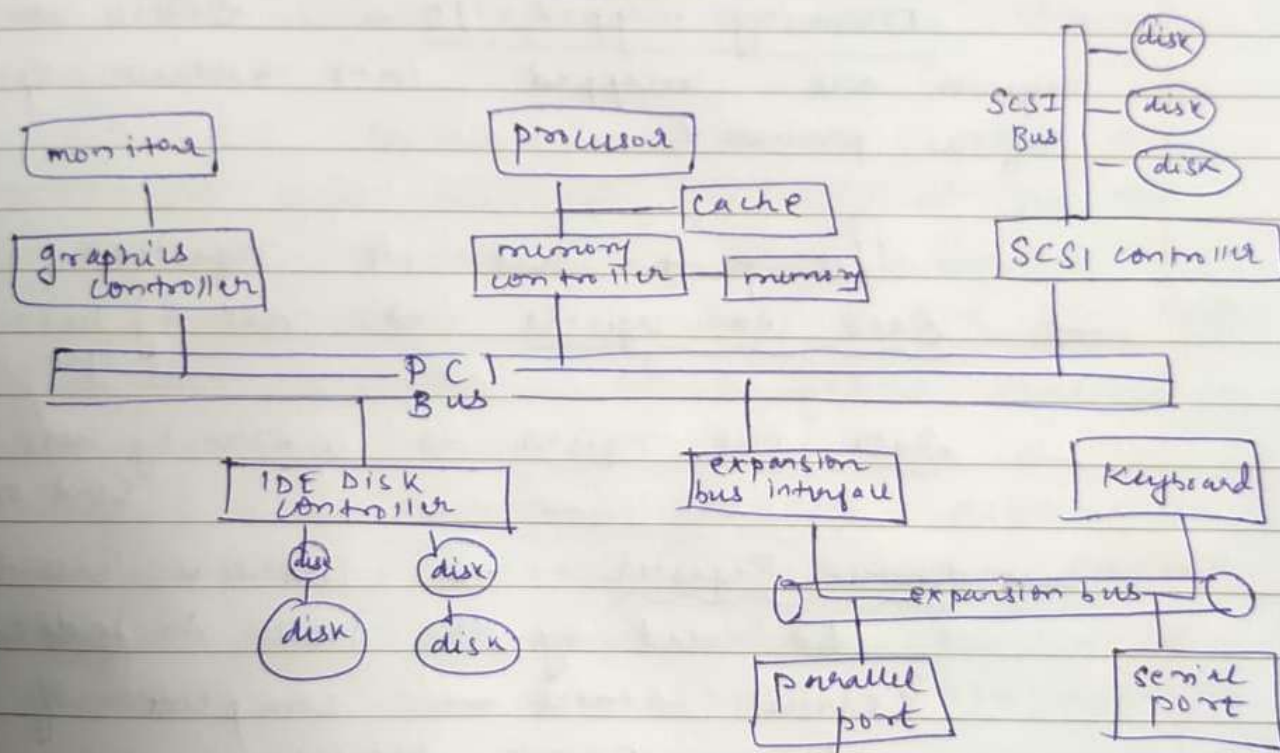 disk
SCSI
Bus
disk
disk
monitor
processor
cache
graphics
controller
memory
controller
memory
SCSI controller
PCI
Bus
IDE DISK
controller
expansion
bus interface
Keyboard
disk
disk
disk
disk
expansion bus
parallel
port
serial
port